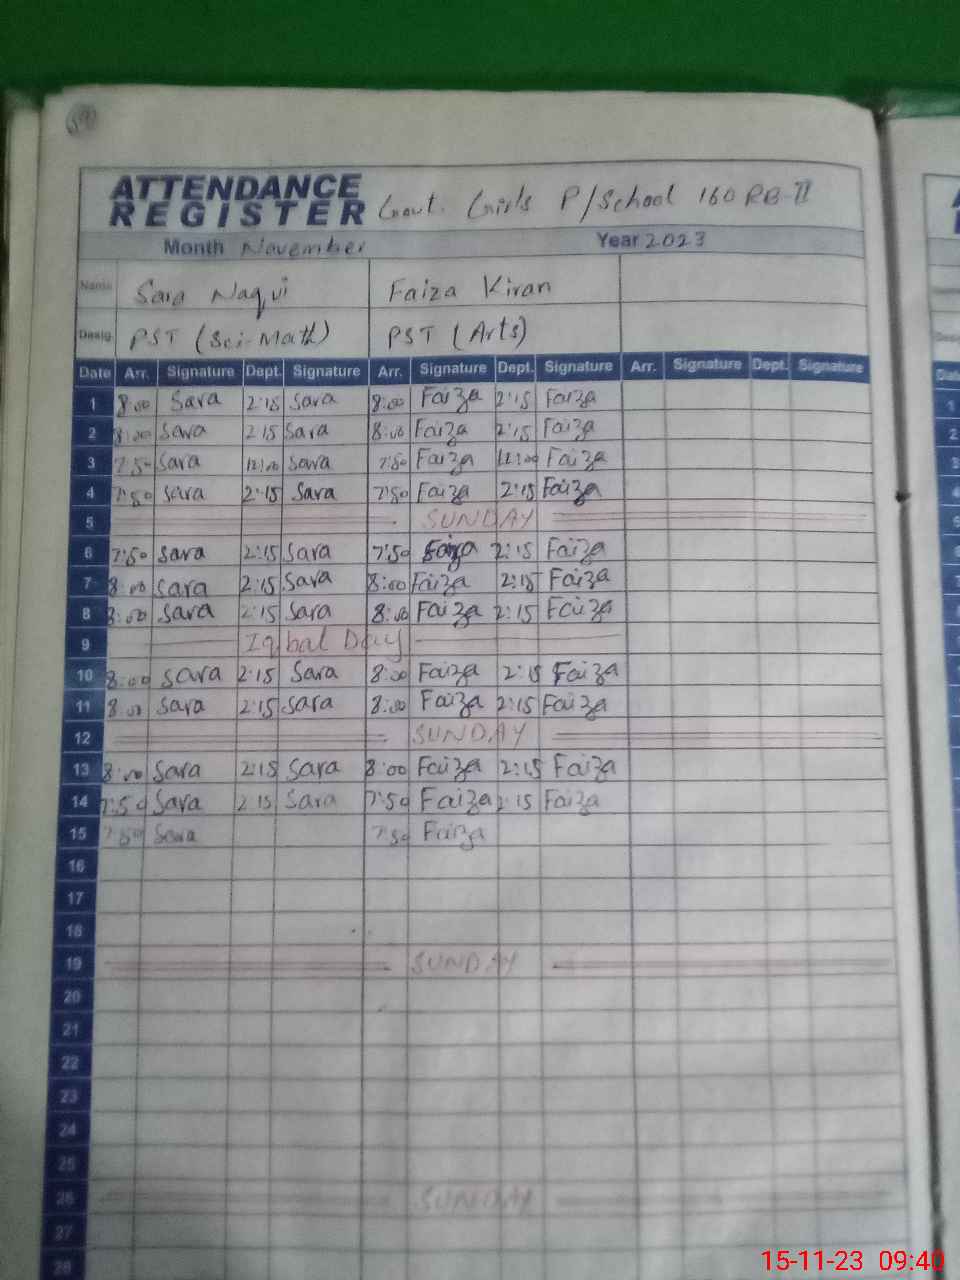 ATTENDANCE
REGISTER Govt. Girls P/School 160 RB-II
Month November Year 2023
Name Sara Naqvi Faiza Kiran
Desig. PST (Sci-Math) PST (Arts)
Date Arr. Signature Dept. Signature Arr. Signature Dept. Signature Arr. Signature Dept. Signature
1 8:00 Sara 2:15 Sara 8:00 Faiza 2:15 Faiza
2 8:00 Sara 2:15 Sara 8:00 Faiza 2:15 Faiza
3 7:50 Sara 12:00 Sara 7:50 Faiza 12:00 Faiza
4 7:50 Sara 2:15 Sara 7:50 Faiza 2:15 Faiza
5 SUNDAY
6 7:50 Sara 2:15 Sara 7:50 Faiza 2:15 Faiza
7 8:00 Sara 2:15 Sara 8:00 Faiza 2:15 Faiza
8 8:00 Sara 2:15 Sara 8:00 Faiza 2:15 Faiza
9 Iqbal Day
10 8:00 Sara 2:15 Sara 8:00 Faiza 2:15 Faiza
11 8:00 Sara 2:15 Sara 8:00 Faiza 2:15 Faiza
12 SUNDAY
13 8:00 Sara 2:15 Sara 8:00 Faiza 2:15 Faiza
14 7:50 Sara 2:15 Sara 7:50 Faiza 2:15 Faiza
15 7:50 Sara 7:50 Faiza
16
17
18
19 SUNDAY
20
21
22
23
24
25
26 SUNDAY
27
28
15-11-23 09:40